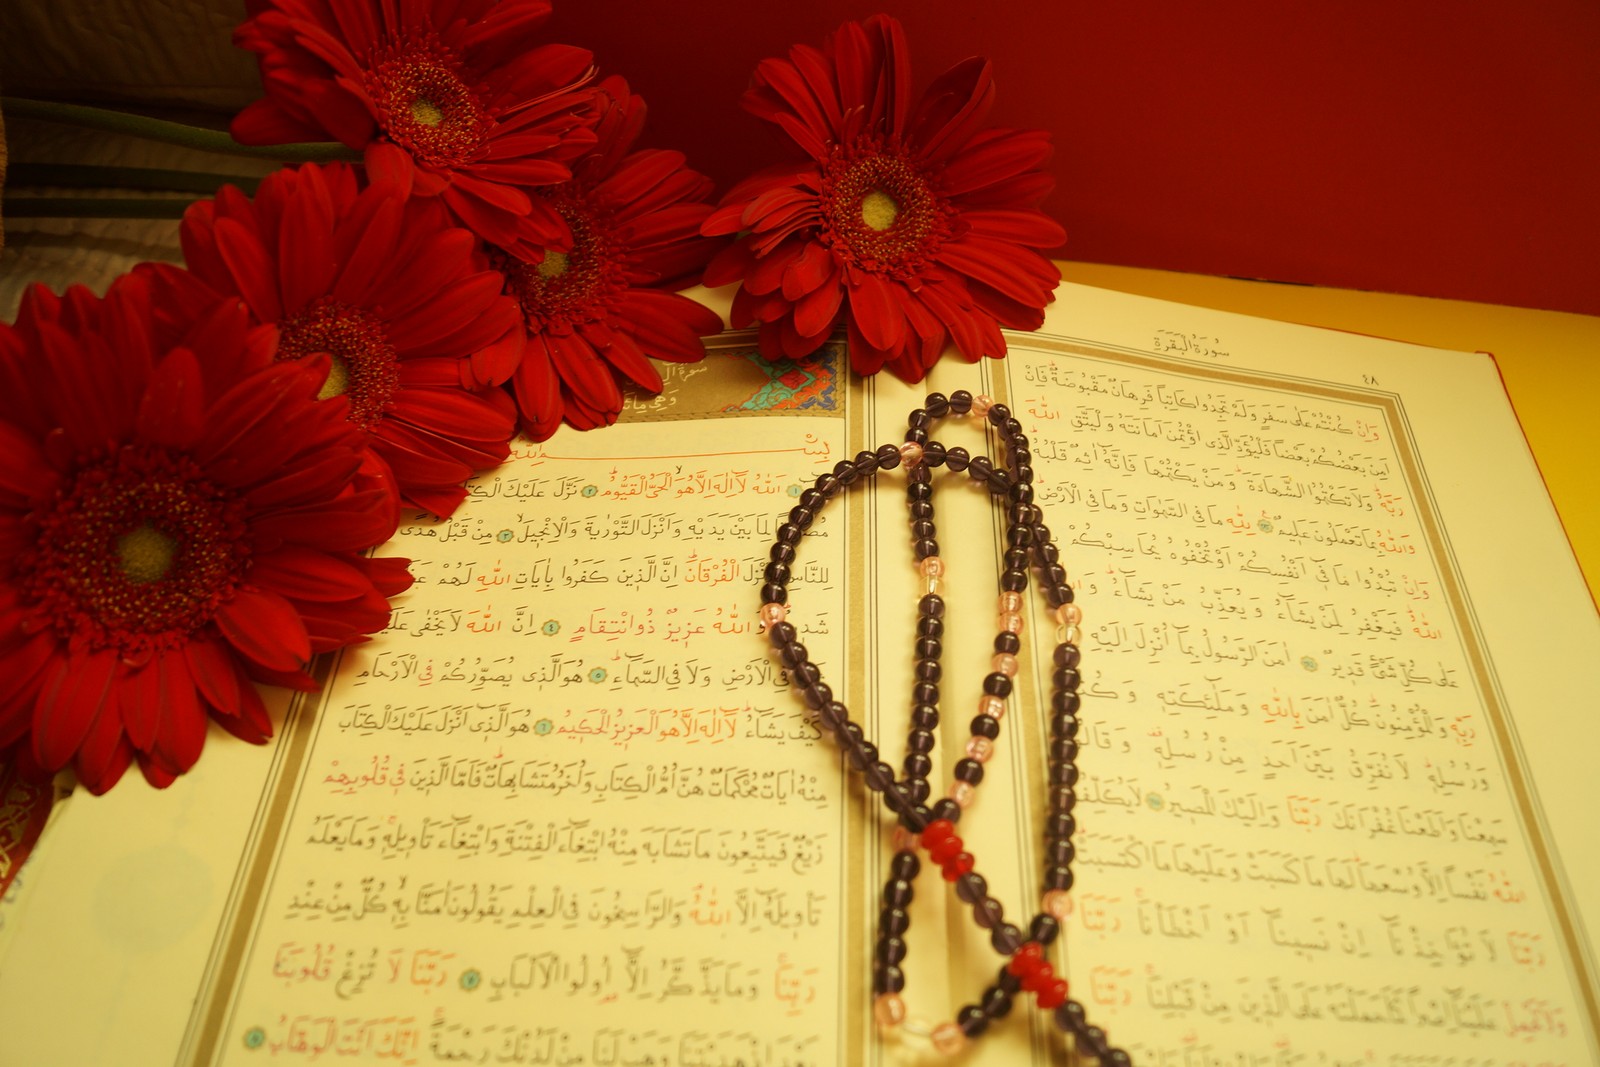 سُورَةُ الْبَقَرَةِ
٤٨
وَاِنْ كُنْتُمْ عَلٰى سَفَرٍ وَلَمْ تَجِدُوا كَاتِبًا فَرِهَانٌ مَقْبُوضَةٌ فَاِنْ
اَمِنَ بَعْضُكُمْ بَعْضًا فَلْيُؤَدِّ الَّذِى اؤْتُمِنَ اَمَانَتَهُ وَلْيَتَّقِ اللّٰهَ
رَبَّهُ وَلَا تَكْتُمُوا الشَّهَادَةَ وَمَنْ يَكْتُمْهَا فَاِنَّهُ اٰثِمٌ قَلْبُهُ
وَاللّٰهُ بِمَا تَعْمَلُونَ عَلِيمٌ لِلّٰهِ مَا فِى السَّمٰوَاتِ وَمَا فِى الْاَرْضِ
وَاِنْ تُبْدُوا مَا فِى اَنْفُسِكُمْ اَوْ تُخْفُوهُ يُحَاسِبْكُمْ بِهِ
اللّٰهُ فَيَغْفِرُ لِمَنْ يَشَاءُ وَيُعَذِّبُ مَنْ يَشَاءُ
عَلٰى كُلِّ شَىْءٍ قَدِيرٌ اٰمَنَ الرَّسُولُ بِمَا اُنْزِلَ اِلَيْهِ
رَبِّهِ وَالْمُؤْمِنُونَ كُلٌّ اٰمَنَ بِاللّٰهِ وَمَلٰئِكَتِهِ
وَرُسُلِهِ لَا نُفَرِّقُ بَيْنَ اَحَدٍ مِنْ رُسُلِهِ
سَمِعْنَا وَاَطَعْنَا غُفْرَانَكَ رَبَّنَا وَاِلَيْكَ الْمَصِيرُ لَا يُكَلِّفُ
اللّٰهُ نَفْسًا اِلَّا وُسْعَهَا لَهَا مَا كَسَبَتْ وَعَلَيْهَا مَا اكْتَسَبَتْ
رَبَّنَا لَا تُؤَاخِذْنَا اِنْ نَسِينَا اَوْ اَخْطَاْنَا رَبَّنَا
عَلَيْنَا اِصْرًا كَمَا حَمَلْتَهُ عَلَى الَّذِينَ مِنْ قَبْلِنَا رَبَّنَا
اللّٰهُ لَا اِلٰهَ اِلَّا هُوَ الْحَىُّ الْقَيُّومُ ٢ نَزَّلَ عَلَيْكَ
لِمَا بَيْنَ يَدَيْهِ وَاَنْزَلَ التَّوْرٰيةَ وَالْاِنْجِيلَ ٣ مِنْ قَبْلُ هُدًى
لِلنَّاسِ الْفُرْقَانَ اِنَّ الَّذِينَ كَفَرُوا بِاٰيَاتِ اللّٰهِ لَهُمْ
وَاللّٰهُ عَزِيزٌ ذُو انْتِقَامٍ ٤ اِنَّ اللّٰهَ لَا يَخْفٰى
فِى الْاَرْضِ وَلَا فِى السَّمَاءِ ٥ هُوَ الَّذِى يُصَوِّرُكُمْ فِى الْاَرْحَامِ
كَيْفَ يَشَاءُ لَا اِلٰهَ اِلَّا هُوَ الْعَزِيزُ الْحَكِيمُ ٦ هُوَ الَّذِى اَنْزَلَ عَلَيْكَ الْكِتَابَ
مِنْهُ اٰيَاتٌ مُحْكَمَاتٌ هُنَّ اُمُّ الْكِتَابِ وَاُخَرُ مُتَشَابِهَاتٌ فَاَمَّا الَّذِينَ فِى قُلُوبِهِمْ
زَيْغٌ فَيَتَّبِعُونَ مَا تَشَابَهَ مِنْهُ ابْتِغَاءَ الْفِتْنَةِ وَابْتِغَاءَ تَاْوِيلِهِ وَمَا يَعْلَمُ
تَاْوِيلَهُ اِلَّا اللّٰهُ وَالرَّاسِخُونَ فِى الْعِلْمِ يَقُولُونَ اٰمَنَّا بِهِ كُلٌّ مِنْ عِنْدِ
رَبِّنَا وَمَا يَذَّكَّرُ اِلَّا اُولُوا الْاَلْبَابِ ٧ رَبَّنَا لَا تُزِغْ قُلُوبَنَا
بَعْدَ اِذْ هَدَيْتَنَا وَهَبْ لَنَا مِنْ لَدُنْكَ رَحْمَةً اِنَّكَ اَنْتَ الْوَهَّابُ